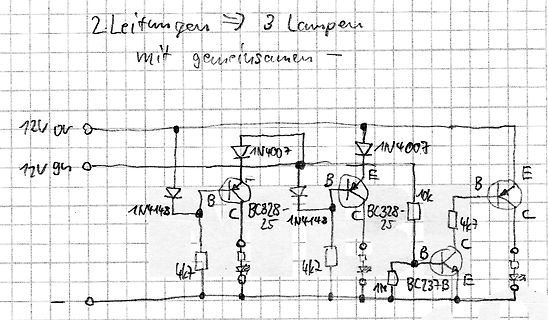 2 Leitungen ⇒ 3 Lampen
mit gemeinsamen –
12V or
12V gn
1N4007
1N4007
E
E
E
B
B
B
10k
1N4148
C
BC328-
25
1N4148
C
BC328-
25
4k7
C
C
4k7
4k2
B
1M
BC237B
E
–